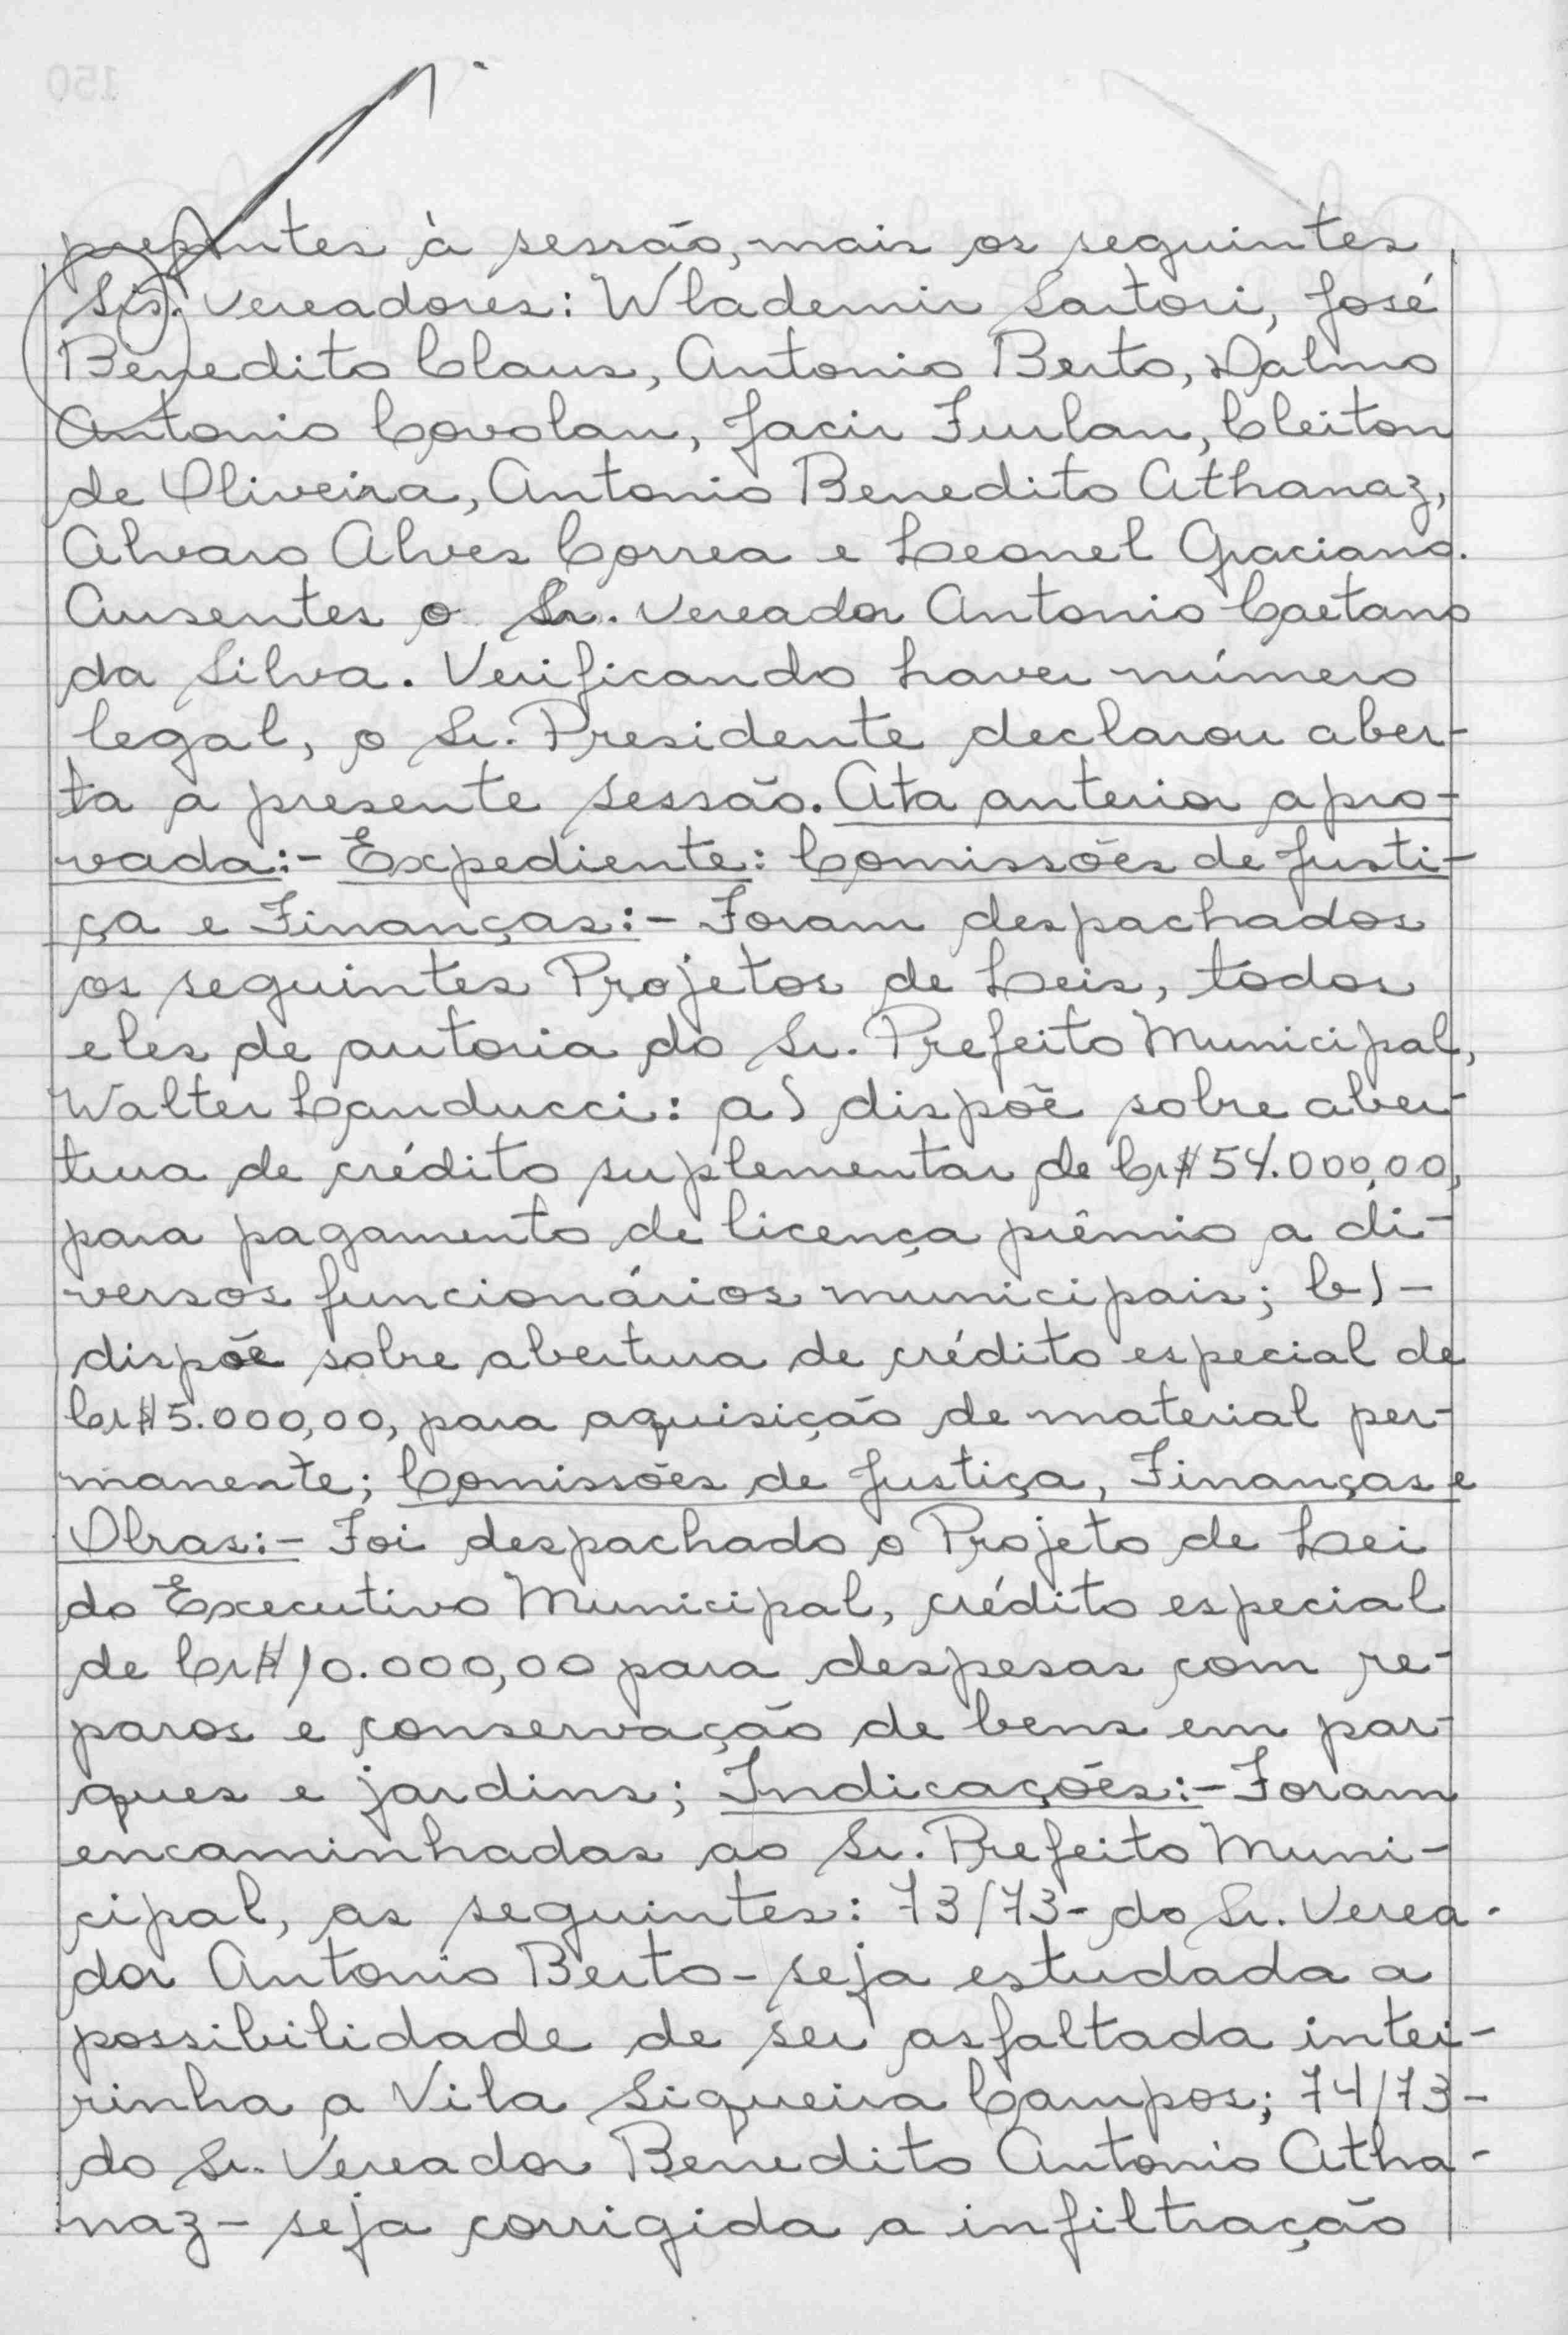 presentes à sessão, mais os seguintes
Srs. Vereadores: Wlademir Sartori, José
Benedito Claus, Antonio Berto, Dalmo
Antonio Covolan, Jacir Furlan, Cleiton
de Oliveira, Antonio Benedito Athanaz,
Alvaro Alves Correa e Leonel Graciano.
Ausentes o Sr. Vereador Antonio Caetano
da Silva. Verificando haver número
legal, o Sr. Presidente declarou aber-
ta a presente sessão. Ata anterior apro-
vada:- Expediente: Comissões de Justi-
ça e Finanças:- Foram despachados
os seguintes Projetos de Leis, todos
eles de autoria do Sr. Prefeito Municipal,
Walter Landucci: a) dispõe sobre aber-
tura de crédito suplementar de Cr$ 54.000,00,
para pagamento de licença prêmio a di-
versos funcionários municipais; b)-
dispõe sobre abertura de crédito especial de
Cr$ 5.000,00, para aquisição de material per-
manente; Comissões de Justiça, Finanças e
Obras:- Foi despachado o Projeto de Lei
do Executivo Municipal, crédito especial
de Cr$ 10.000,00 para despesas com re-
paros e conservação de bens em par-
ques e jardins; Indicações:- Foram
encaminhadas ao Sr. Prefeito Muni-
cipal, as seguintes: 73/73- do Sr. Verea-
dor Antonio Berto - seja estudada a
possibilidade de ser asfaltada intei-
rinha a Vila Siqueira Campos; 74/73-
do Sr. Vereador Benedito Antonio Atha-
naz - seja corrigida a infiltração